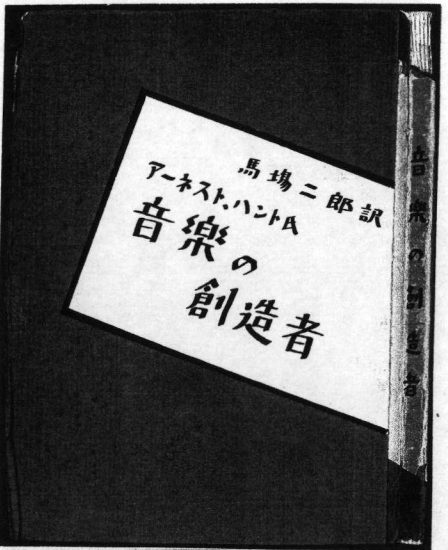 馬場二郎訳
アーネスト、ハント氏
音樂の
創造者
音樂の創造者